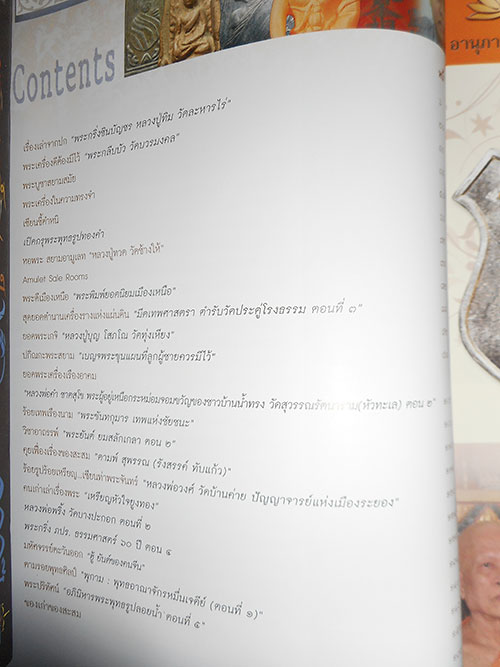 Contents
อานุภา
เรื่องเล่าจากปก "พระกริ่งชินบัญชร หลวงปู่ทิม วัดละหารไร่"
พระเครื่องดีต้องมีไว้ "พระกลีบบัว วัดบวรมงคล"
พระบูชาสยามสมัย
พระเครื่องในความทรงจำ
เซียนชี้ตำหนิ
เปิดกรุพระพุทธรูปทองคำ
หอพระ สยามอามูเลท "หลวงปู่ทวด วัดช้างให้"
Amulet Sale Rooms
พระดีเมืองเหนือ "พระพิมพ์ยอดนิยมเมืองเหนือ"
สุดยอดตำนานเครื่องรางแห่งแผ่นดิน "มีดเทพศาสตรา ตำรับวัดประดู่โรงธรรม ตอนที่ ๓"
ยอดพระเกจิ "หลวงปู่บุญ โสภโณ วัดทุ่งเหียง"
ปกิณกะพระสยาม "เบญจพระขุนแผนที่ลูกผู้ชายควรมีไว้"
ยอดพระเครื่องเรืองอาคม
"หลวงพ่อดำ ชาตสุโข พระผู้อยู่เหนือกระหม่อมจอมขวัญของชาวบ้านน้ำทรง วัดสุวรรณรัตนาราม(หัวทะเล) ตอน ๒"
ร้อยเทพเรืองนาม "พระขันทกุมาร เทพแห่งชัยชนะ"
วิชาอาถรรพ์ "พระยันต์ ยมสลักเกลา ตอน ๒"
คุยเฟื่องเรื่องของสะสม "คามพ์ สุพรรณ (รังสรรค์ ทับแก้ว)"
ร้อยรูปร้อยเหรียญ...เซียนท่าพระจันทร์ "หลวงพ่อวงศ์ วัดบ้านค่าย ปัญญาจารย์แห่งเมืองระยอง"
คนเก่าเล่าเรื่องพระ "เหรียญหัวใจยูงทอง"
หลวงพ่อพริ้ง วัดบางปะกอก ตอนที่ ๒
พระกริ่ง ภปร. ธรรมศาสตร์ ๖๐ ปี ตอน ๔
มหัศจรรย์ตะวันออก "ฮู้ ยันต์ของคนจีน"
ตามรอยพุทธศิลป์ "พุกาม : พุทธอาณาจักรหมื่นเจดีย์ (ตอนที่ ๑)"
พระปริทัศน์ "อภินิหารพระพุทธรูปลอยน้ำ ตอนที่ ๕"
ของเก่าของสะสม